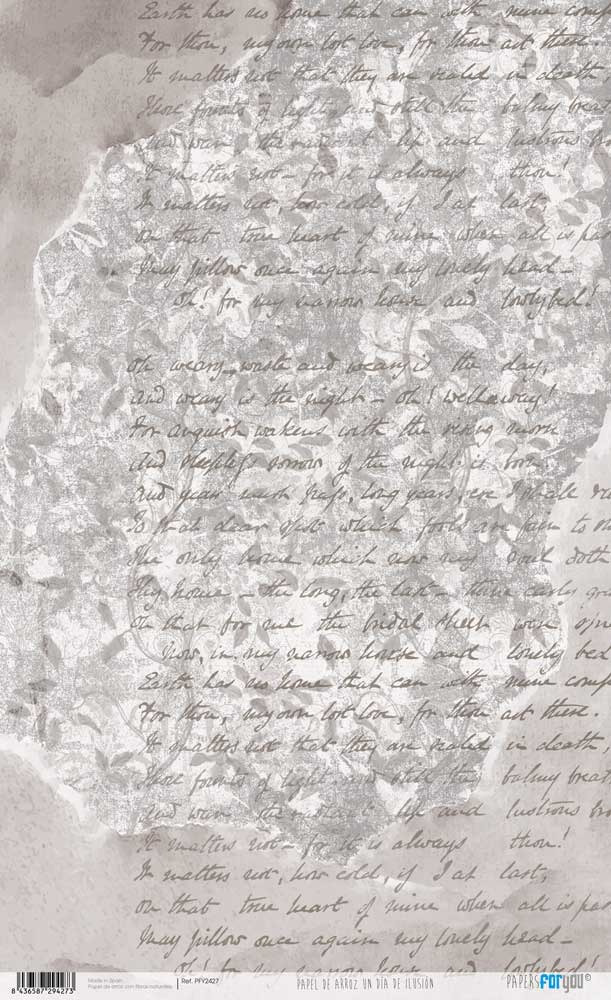 Earth has no home that can with mine comp
For thou, my own lost love, for thou art there.
It matters not that they are sealed in death
Those founts of light and still the balmy breat
And wan the radiant life and lustrous bro
It matters not - for it is always thou!
It matters not, how cold, if I at last,
on that true heart of mine when all is pas
May pillow once again my lonely head -
Oh! for my narrow house and lowly bed!
Oh weary, waste and weary is the day,
and weary is the night - oh! wellaway!
For anguish wakens with the rising morn
And sleepless sorrow of the night is born
And years must pass, long years, ere I shall
To that dear spot which fools are fain to
The only home which now my soul doth
Thy home - the long, the last - thine early gra
Oh that for me the bridal sheet were spre
Now, in my narrow house and lonely bed
Earth has no home that can with mine comp
For thou, my own lost love, for thou art there.
It matters not that they are sealed in death
Those founts of light and still the balmy breat
and wan the radiant life and lustrous bro
It matters not - for it is always thou!
It matters not, how cold, if I at last,
on that true heart of mine when all is pas
May pillow once again my lonely head -
Oh! for my narrow house and lowly bed!
8 436587 294273
Made in Spain
Papel de arroz con fibras naturales
Ref. PFY2427
PAPEL DE ARROZ UN DÍA DE ILUSIÓN
PAPERSFORYOU©